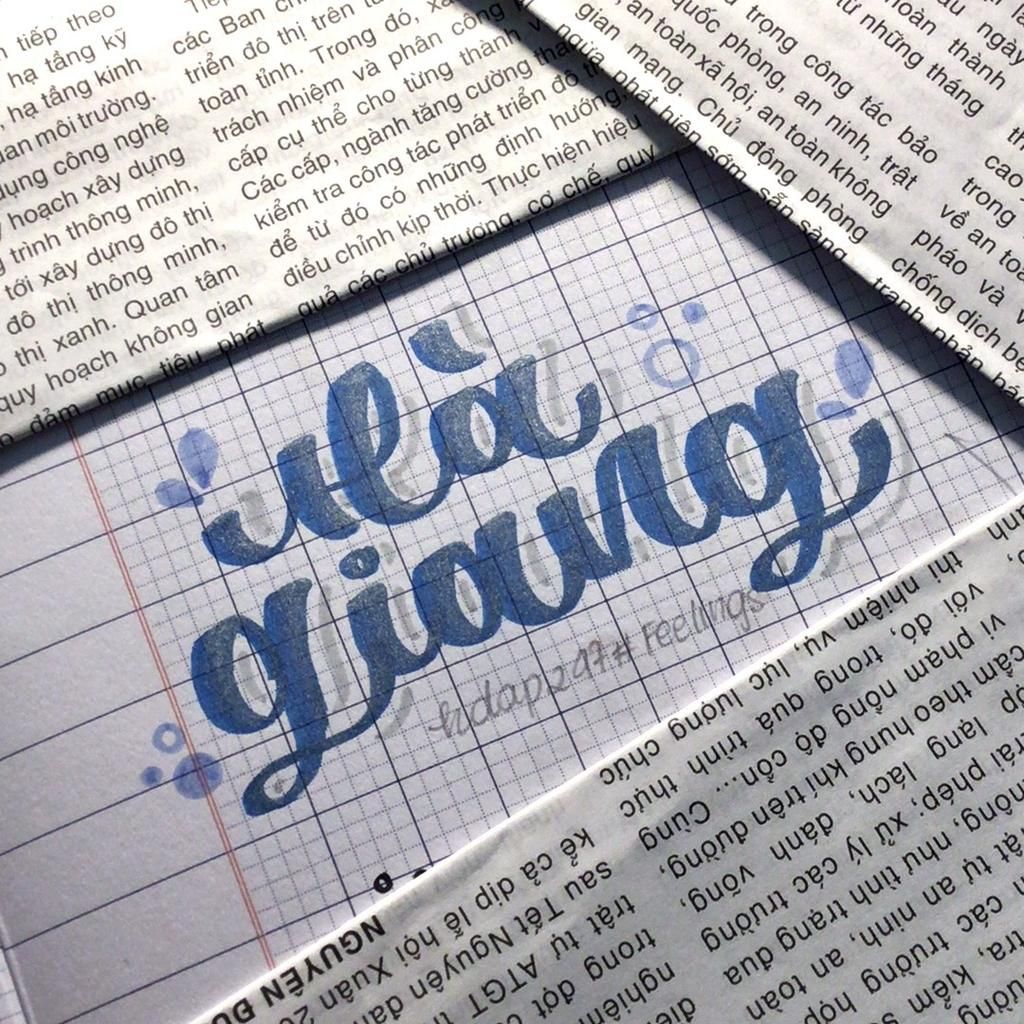 n tiếp theo
hạ tầng kỹ
, hạ tầng kinh
uan môi trường.
dụng công nghệ
y hoạch xây dựng
g trình thông minh,
tới xây dựng đô thị
đô thị thông minh,
o thị xanh. Quan tâm
quy hoạch không gian
các Ban
triển đô thị trên
toàn tỉnh. Trong đó,
trách nhiệm và phân công
cấp cụ thể cho từng thành
Các cấp, ngành tăng cường
kiểm tra công tác phát triển đô
để từ đó có những định hướng,
điều chỉnh kịp thời. Thực hiện hiệu
quả các chủ trương, cơ chế, quy
đảm mục tiêu phát
quốc phòng, an ninh, trật
an toàn xã hội, an toàn không
gian mạng. Chủ động phòng
trong công tác bảo
từ những tháng
hoàn thành
ngày
cao
trong
về an toà
pháo và
chống dịch bệ
sẵn sàng
tránh
Hà
giang
hdap247#Feelings
NGUYỄN
kể cả dịp lễ hội Xuân 20
sau Tết Nguyên đán
trật tự ATGT
trong đợt
nghiêm
lực lượng chức
vụ, trong quá trình thực
với đó,
thì nhiệm
vi phạm nồng độ cồn... Cùng
cầm theo hung khí trên đường,
lạng lách, đánh võng,
trái phép; xử lý các trường
như tình trạng đua
trật tự an ninh, an toàn
các trường hợp
kiểm